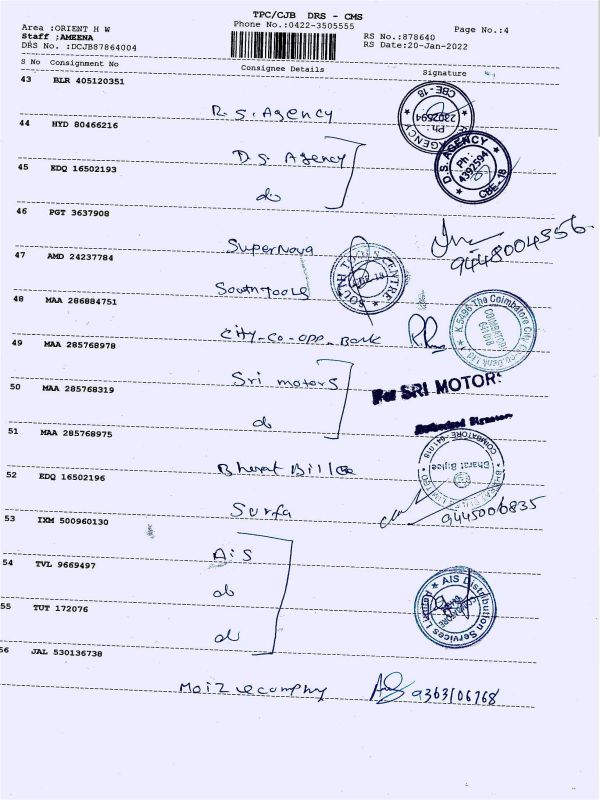 TPC/CJB DRS - CMS
Area :ORIENT H W Phone No.:0422-3505555 Page No.:4
Staff :AMEENA RS No.:878640
DRS No. :DCJB87864004 RS Date:20-Jan-2022
S No Consignment No Consignee Details Signature
43 BLR 405120351
R.S. Agency
CBE-18 Ph: 2392594 AGENCY
44 HYD 80466216
D.S. Agency
D.S. AGENCY Ph: 4392594 CBE-18
45 EDQ 16502193
do
46 PGT 3637908
Supernova
9448004356
47 AMD 24237784
South Tools
SOUTH TOOLS CENTRE
48 MAA 286884751
City-co-opp-Bank
K.5496 The Coimbatore City Co-op Bank Ltd
COIMBATORE 641018
49 MAA 285768978
Sri motors
For SRI MOTORS
50 MAA 285768319
do
51 MAA 285768975
Bharat Billee
COIMBATORE-641018 Bharat Bijlee
52 EDQ 16502196
Surfa
9445006835
53 IXM 500960130
AiS
54 TVL 9669497
do
AIS Distribution Services
55 TUT 172076
do
56 JAL 530136738
Moiz ecomphy
9363106768